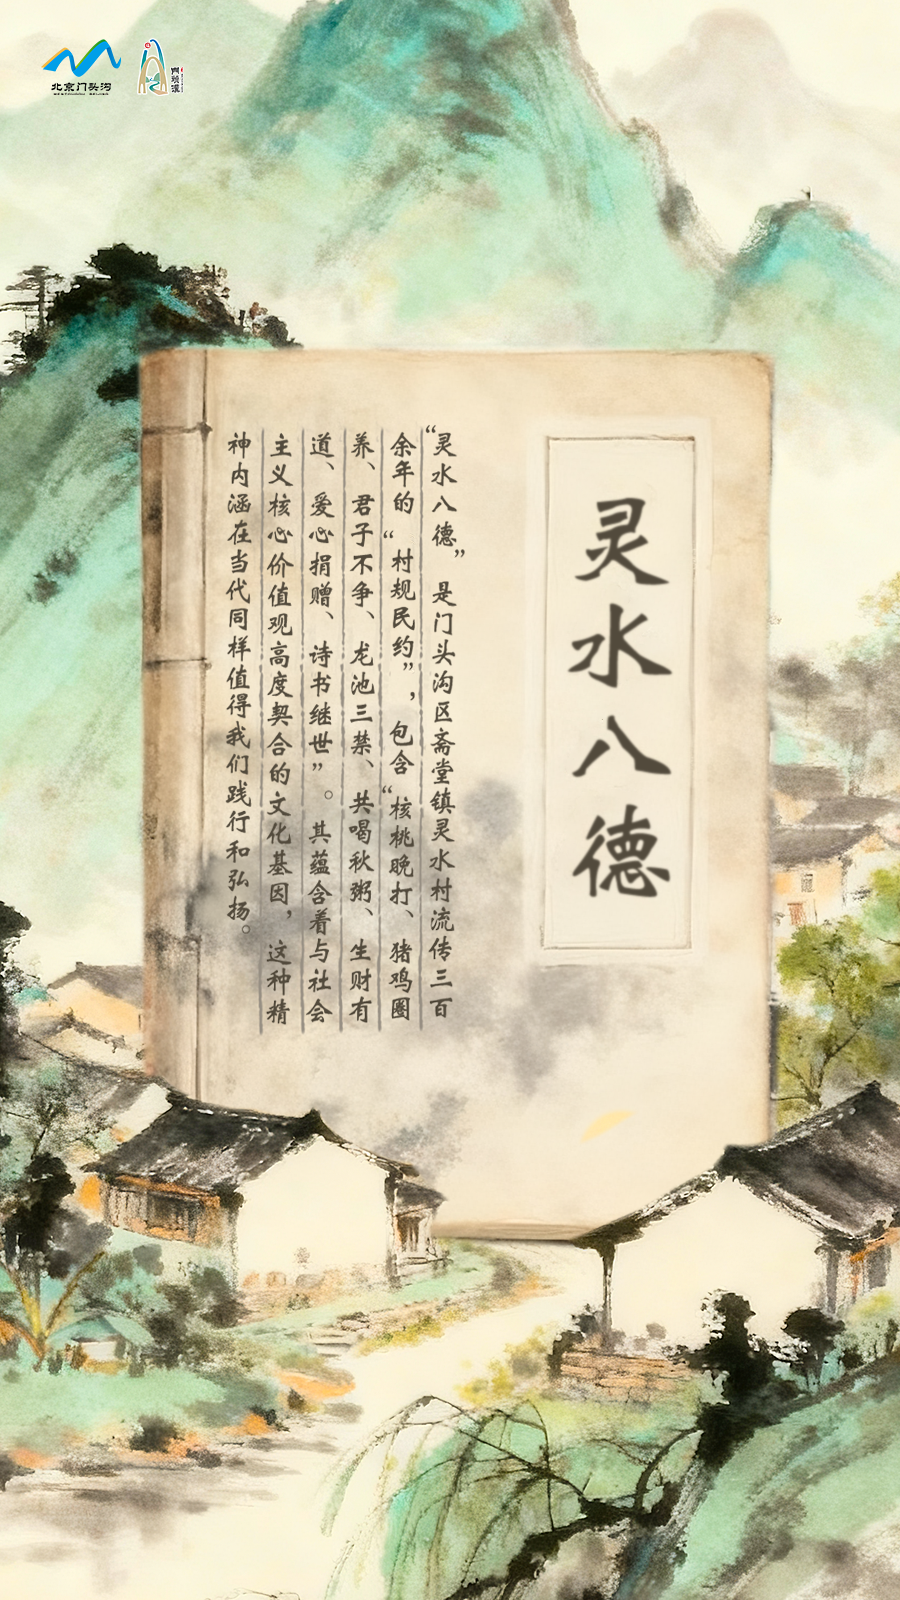 北京门头沟
灵水八德
“灵水八德”是门头沟区斋堂镇灵水村流传三百
余年的“村规民约”，包含“核桃晚打、猪鸡圈
养、君子不争、龙池三禁、共喝秋粥、生财有
道、爱心捐赠、诗书继世”。其蕴含着与社会
主义核心价值观高度契合的文化基因，这种精
神内涵在当代同样值得我们践行和弘扬。